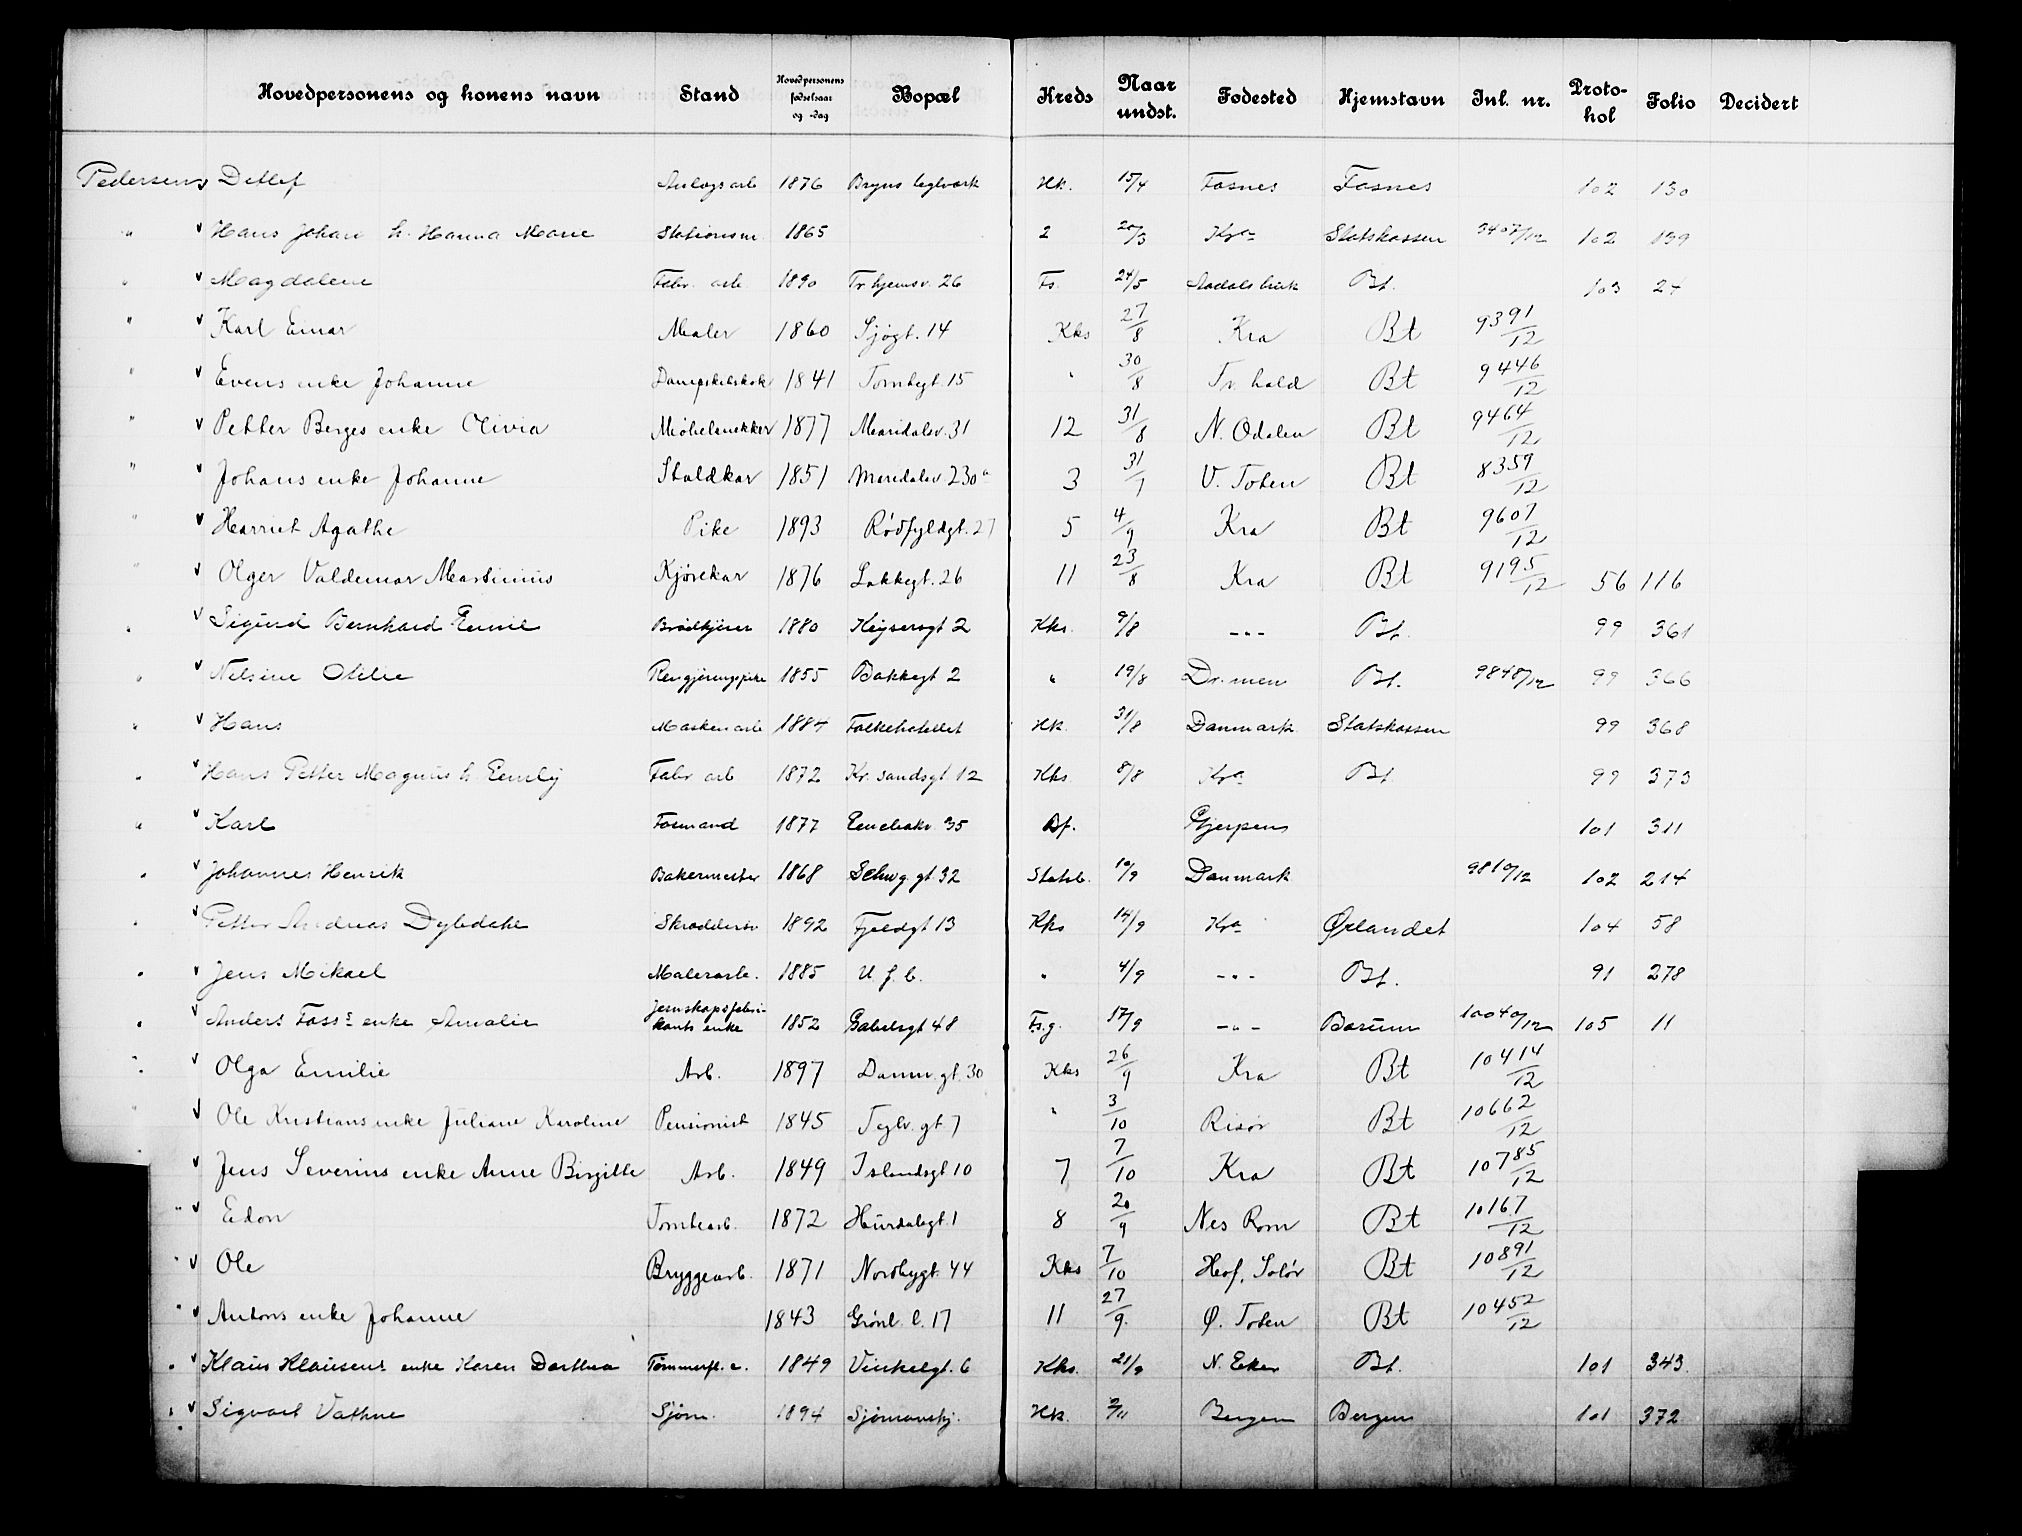 Hovedpersonens og konens navn Stand Hovedpersonens fødselsaar og -dag Bopæl Kreds Naar undst. Fødested Hjemstavn Inl. nr. Proto-hol Folio Decidert
Pedersen, Detlef Anlægsarb 1876 Bryns teglverk Hk. 15/4 Fosnes Fosnes 102 130
" Hans Johan h. Hanna Marie Stationsm. 1865 2 20/3 Kra Statskassen 3407/12 102 139
" Magdalene Fabr. arb. 1890 Tr.hjemsv. 26 Fs. 24/5 Aadalsbruk Bt. 103 24
" Karl Einar Maler 1860 Sjøgt. 14 Kks 27/8 Kra Bt 9391/12
" Evens enke Johanne 1841 Tomtegt. 15 " 30/8 Tr.hald Bt 9446/12
" Petter Berges enke Olivia Møbelsnekker 1877 Maridalsv. 31 12 31/8 N. Odalen Bt 9464/12
" Johans enke Johanne Staldkar 1851 Maridalsv 230a 3 31/7 V. Toten Bt 8359/12
" Harriet Agathe Pike 1893 Rødfyldgt. 27 5 4/9 Kra Bt 9607/12
" Olger Valdemar Martinius Kjørekar 1876 Lakkegt. 26 11 23/8 Kra Bt 9195/12 56 116
" Sigurd Bernhard Emil Brødkjører 1880 Keysersgt 2 Kks. 9/8 -"- Bt. 99 361
" Nelsine Otilie Rengjøringspike 1855 Bakkegt 2 " 19/8 Dr.men Bt. 9848/12 99 366
" Hans Maskenarb 1884 Folkehotellet Hk. 31/8 Danmark Statskassen 99 368
" Hans Petter Magnus h. Emily Fabr arb 1872 Kr.sandsgt 12 Kks 8/8 Kra Bt. 99 373
" Karl Formand 1877 Enebakv. 35 Bf. Gjerpen 101 311
" Johannes Henrik Bakermester 1868 Schwg.gt 32 Statsb. 10/9 Danmark 9810/12 102 214
" Petter Andreas Dybdahl 1892 Fjeldgt 13 Kks 14/9 Kra Ørlandet 104 58
" Jens Mikael Malerarb. 1885 U. f. b. " 4/9 -"- Bt. 91 278
" Anders Foss's enke Amalie Jernskapsfabrikants enke 1852 Gabelsgt 48 Fsg. 17/9 -"- Bærum 10040/12 105 11
" Olga Emilie Arb. 1897 Danm.gt. 30 Kks 26/9 Kra Bt 10414/12
" Ole Kristians enke Juliane Karoline Pensionist 1845 Teglv.gt. 7 " 3/10 Risør Bt 10662/12
" Jens Severins enke Anne Birgitte Arb. 1849 Islandsgt 10 7 7/10 Kra Bt 10785/12
" Edon Tomtearb. 1872 Hurdalsgt. 1 8 20/9 Nes Rom Bt 10167/12
" Ole Bryggearb. 1871 Nordbygt. 44 Kks 7/10 Hof, Solør Bt 10891/12
" Antons enke Johanne 1843 Grønl. l. 17 11 27/9. Ø. Toten Bt 10452/12
" Klaus Klausens enke Karen Dorthea Tømmerfl. e. 1849 Vinkelgt. 6 Kks. 21/9 N. Eker Bt. 101 343
" Sigvart Vathne Sjøm. 1894 Sjømanshj. Hk. 2/11 Bergen Bergen 101 372